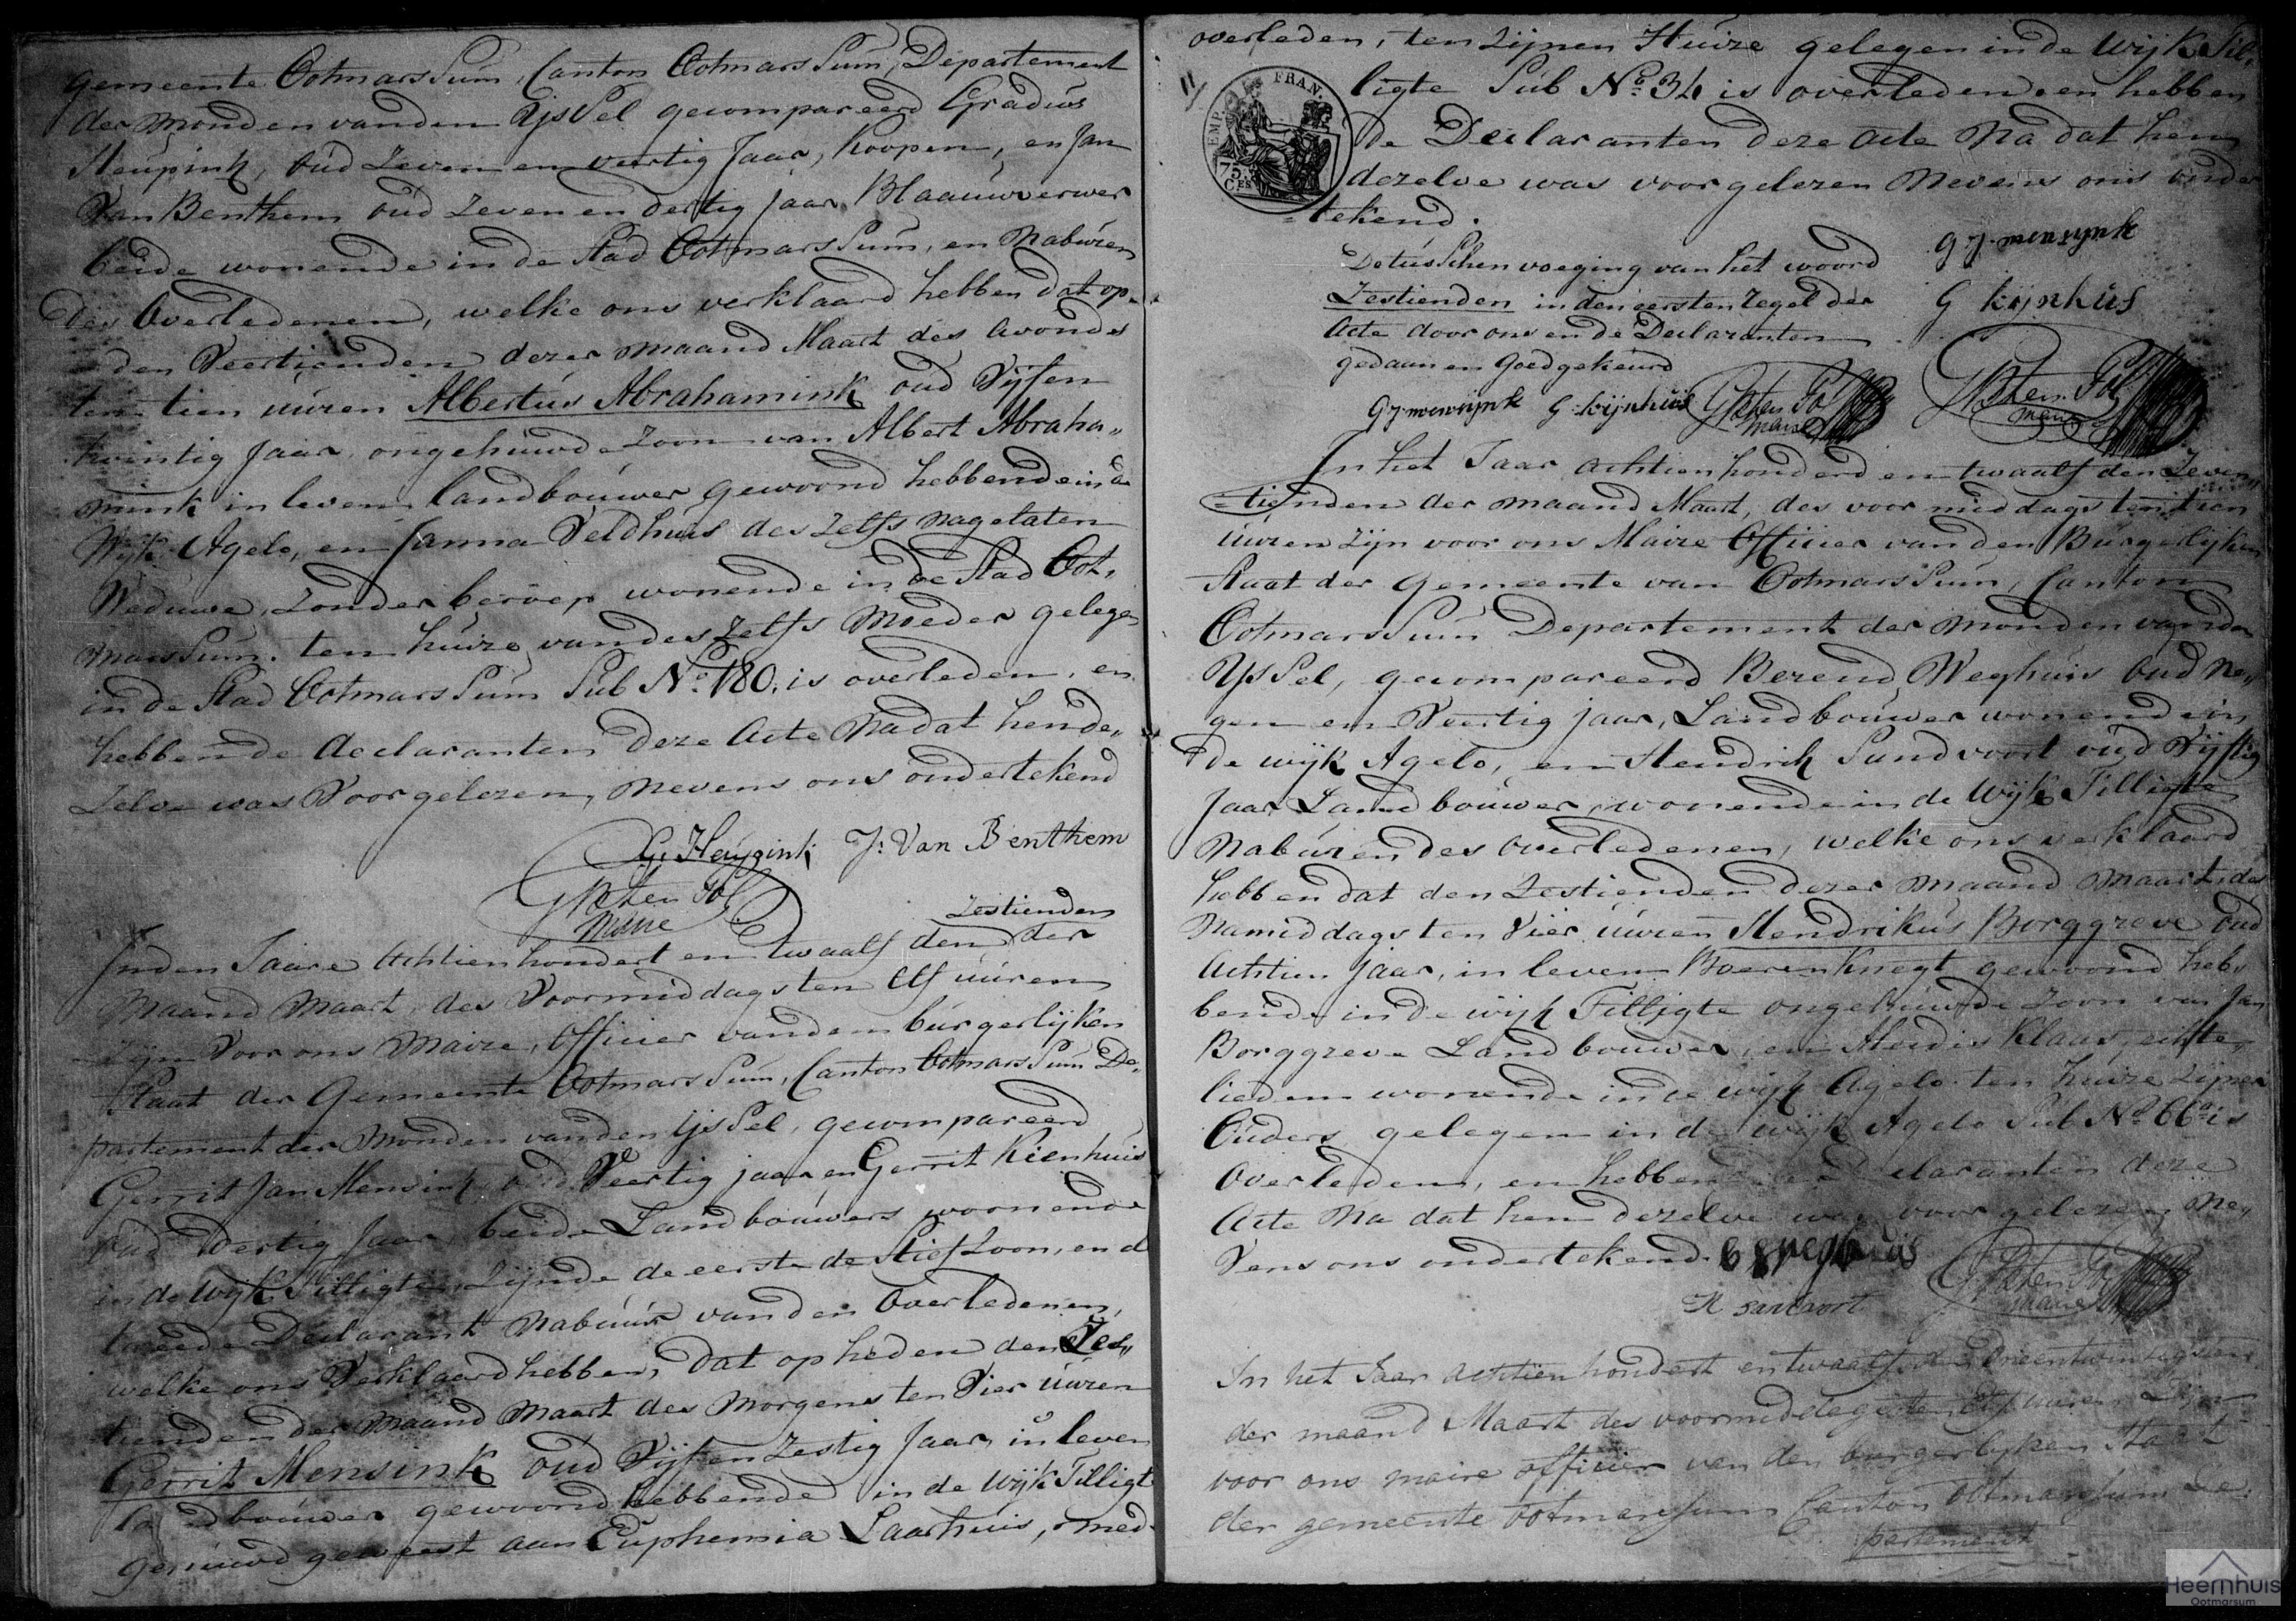 gemeente Ootmarssum, Canton Ootmarssum, Departement
der monden van den IJssel gecompareerd Gradus
Heupink, oud Zeven en veertig Jaar, Koopm, en Jan
Van Benthem oud Zeven en dertig jaar Blaauwverwer
beide wonende in de Stad Ootmarssum, en Naburen
des Overledenen, welke ons verklaard hebben dat op
den Veertienden dezer maand Maart des avonds
ten tien uuren Albertus Abrahamink oud Vyf en
twintig Jaar, ongehuwde Zoon van Albert Abraha„
mink in leven landbouwer gewoond hebbende in de
Wyk Agelo, en Janna Veldhuis des zelfs nagelaten
Weduwe, zonder beroep wonende in de Stad Oot„
marssum. ten huize van des zelfs Moeder gelegen
in de Stad Ootmarssum Sub No. 180. is overleden, en
hebben de declaranten deze Acte Na dat hen de„
zelve was Voorgelezen, nevens ons ondertekend
G: Heupink J: Van Benthem
Maire
Zestienden
In den Jaare Achtienhondert en twaalf den der
Maand Maart, des Voormiddags ten Elf uuren
Zyn Voor ons Maire, Officier van den burgerlyken
Staat der Gemeente Ootmarssum, Canton Ootmarssum De„
partement der Monden van den IJssel, gecompareerd
Gerrit Jan Mensink oud Veertig jaar en Gerrit Kienhuis
oud dertig Jaar beide Landbouwers woonende
in de Wyk Tilligte, zijnde de eerste de Stiefzoon, en d
tweede Declarant Nabuur van den Overledenen,
welke ons Verklaard hebben, dat op heden den Zes„
tienden der maand Maart des Morgens ten Vier uuren
Gerrit Mensink oud Vyf en Zestig Jaar in leven
landbouwer gewoond hebbende in de Wyk Tilligt
gehuwd geweest aan Euphemia Laarhuis, mede
overleden, ten zijnen Huize gelegen in de Wijk Til„
ligte Sub No. 34 is overleden en hebben
de Declaranten deze acte Na dat hen
dezelve was voorgelezen Nevens ons onder
=tekend.
EMP. FRAN.
75 CES
De tusschenvoeging van het woord
Zestienden in den eersten regel der
Acte door ons en de Declaranten
gedaan en Goedgekeurd
G J mensijnk
G kijnhuis
G J mensijnk G kijnhuis
Maire
Maire
In het Jaar achtien honderd en twaalf den Zeven„
=tienden der maand Maart, des voor middags ten tien
uuren zijn voor ons Maire Officier van den Burgerlyken
Staat der Gemeente van Ootmarssum, Canton
Ootmarssum Departement der Monden van den
Yssel, gecompareerd Berend Weghuis oud Ne„
gen en Veertig jaar, Landbouwer wonende in
de wijk Agelo, en Hendrik Sandvoort oud Vijftig
Jaar Landbouwer, wonende in de Wijk Tilligte
Naburen des overledenen, welke ons verklaard
hebben dat den Zestienden dezer maand Maart, des
Namiddags ten Vier uuren Hendrikus Borggreve oud
Achtien Jaar, in leven Boerenknegt gewoond heb„
bende in de wijk Tilligte ongehuwde zoon van Jan
Borggreve Landbouwer, en Klaas, echte„
lieden wonende in de wijk Agelo ten huize zijner
Ouders gelegen in de wijk Agelo Sub No. 66a is
Overleden, en hebben de Declaranten deze
Acte Na dat hen dezelve was voorgelezen, Ne„
vens ons ondertekend. B Weghuis
H Santvoort
Maire
In het Jaar achtien hondert en twaalf den drieentwintigsten
der maand Maart des voormiddags ten Elf uuren Zijn
voor ons maire officier van den burgerlyken Staat
der gemeente Ootmarssum Canton Ootmarssum De„
partement
Heernhuis
Ootmarsum